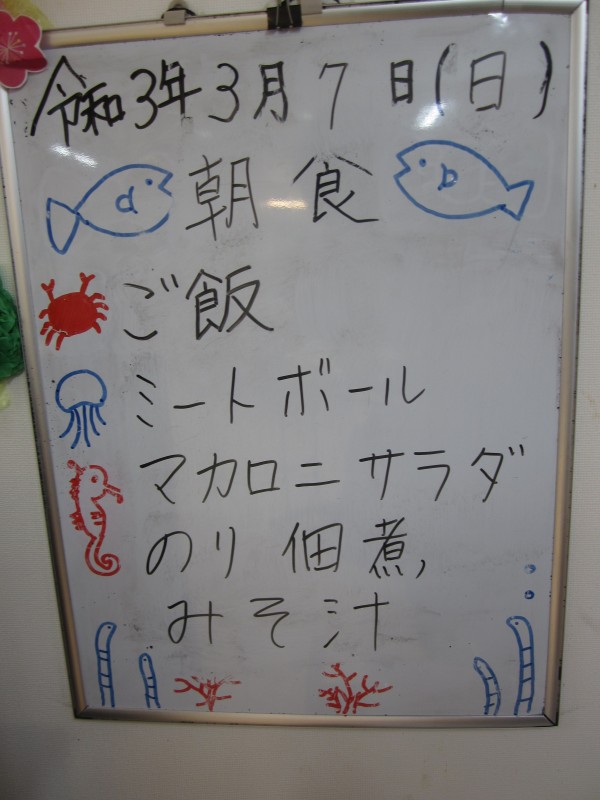 令和3年3月7日(日)
朝食
ご飯
ミートボール
マカロニサラダ
のり佃煮
みそ汁